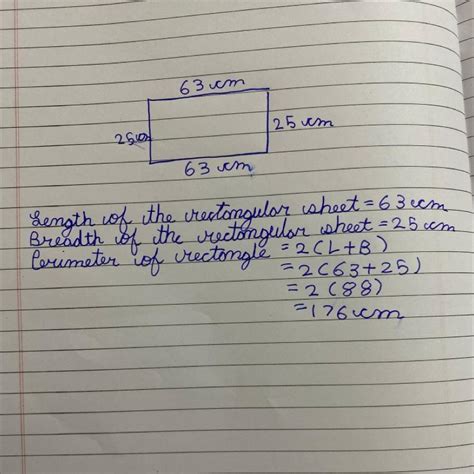 63 cm
25 cm
25 cm
63 cm
Length of the rectangular sheet = 63 cm
Breadth of the rectangular sheet = 25 cm
Perimeter of rectangle = 2(L+B)
= 2(63+25)
= 2(88)
= 176 cm